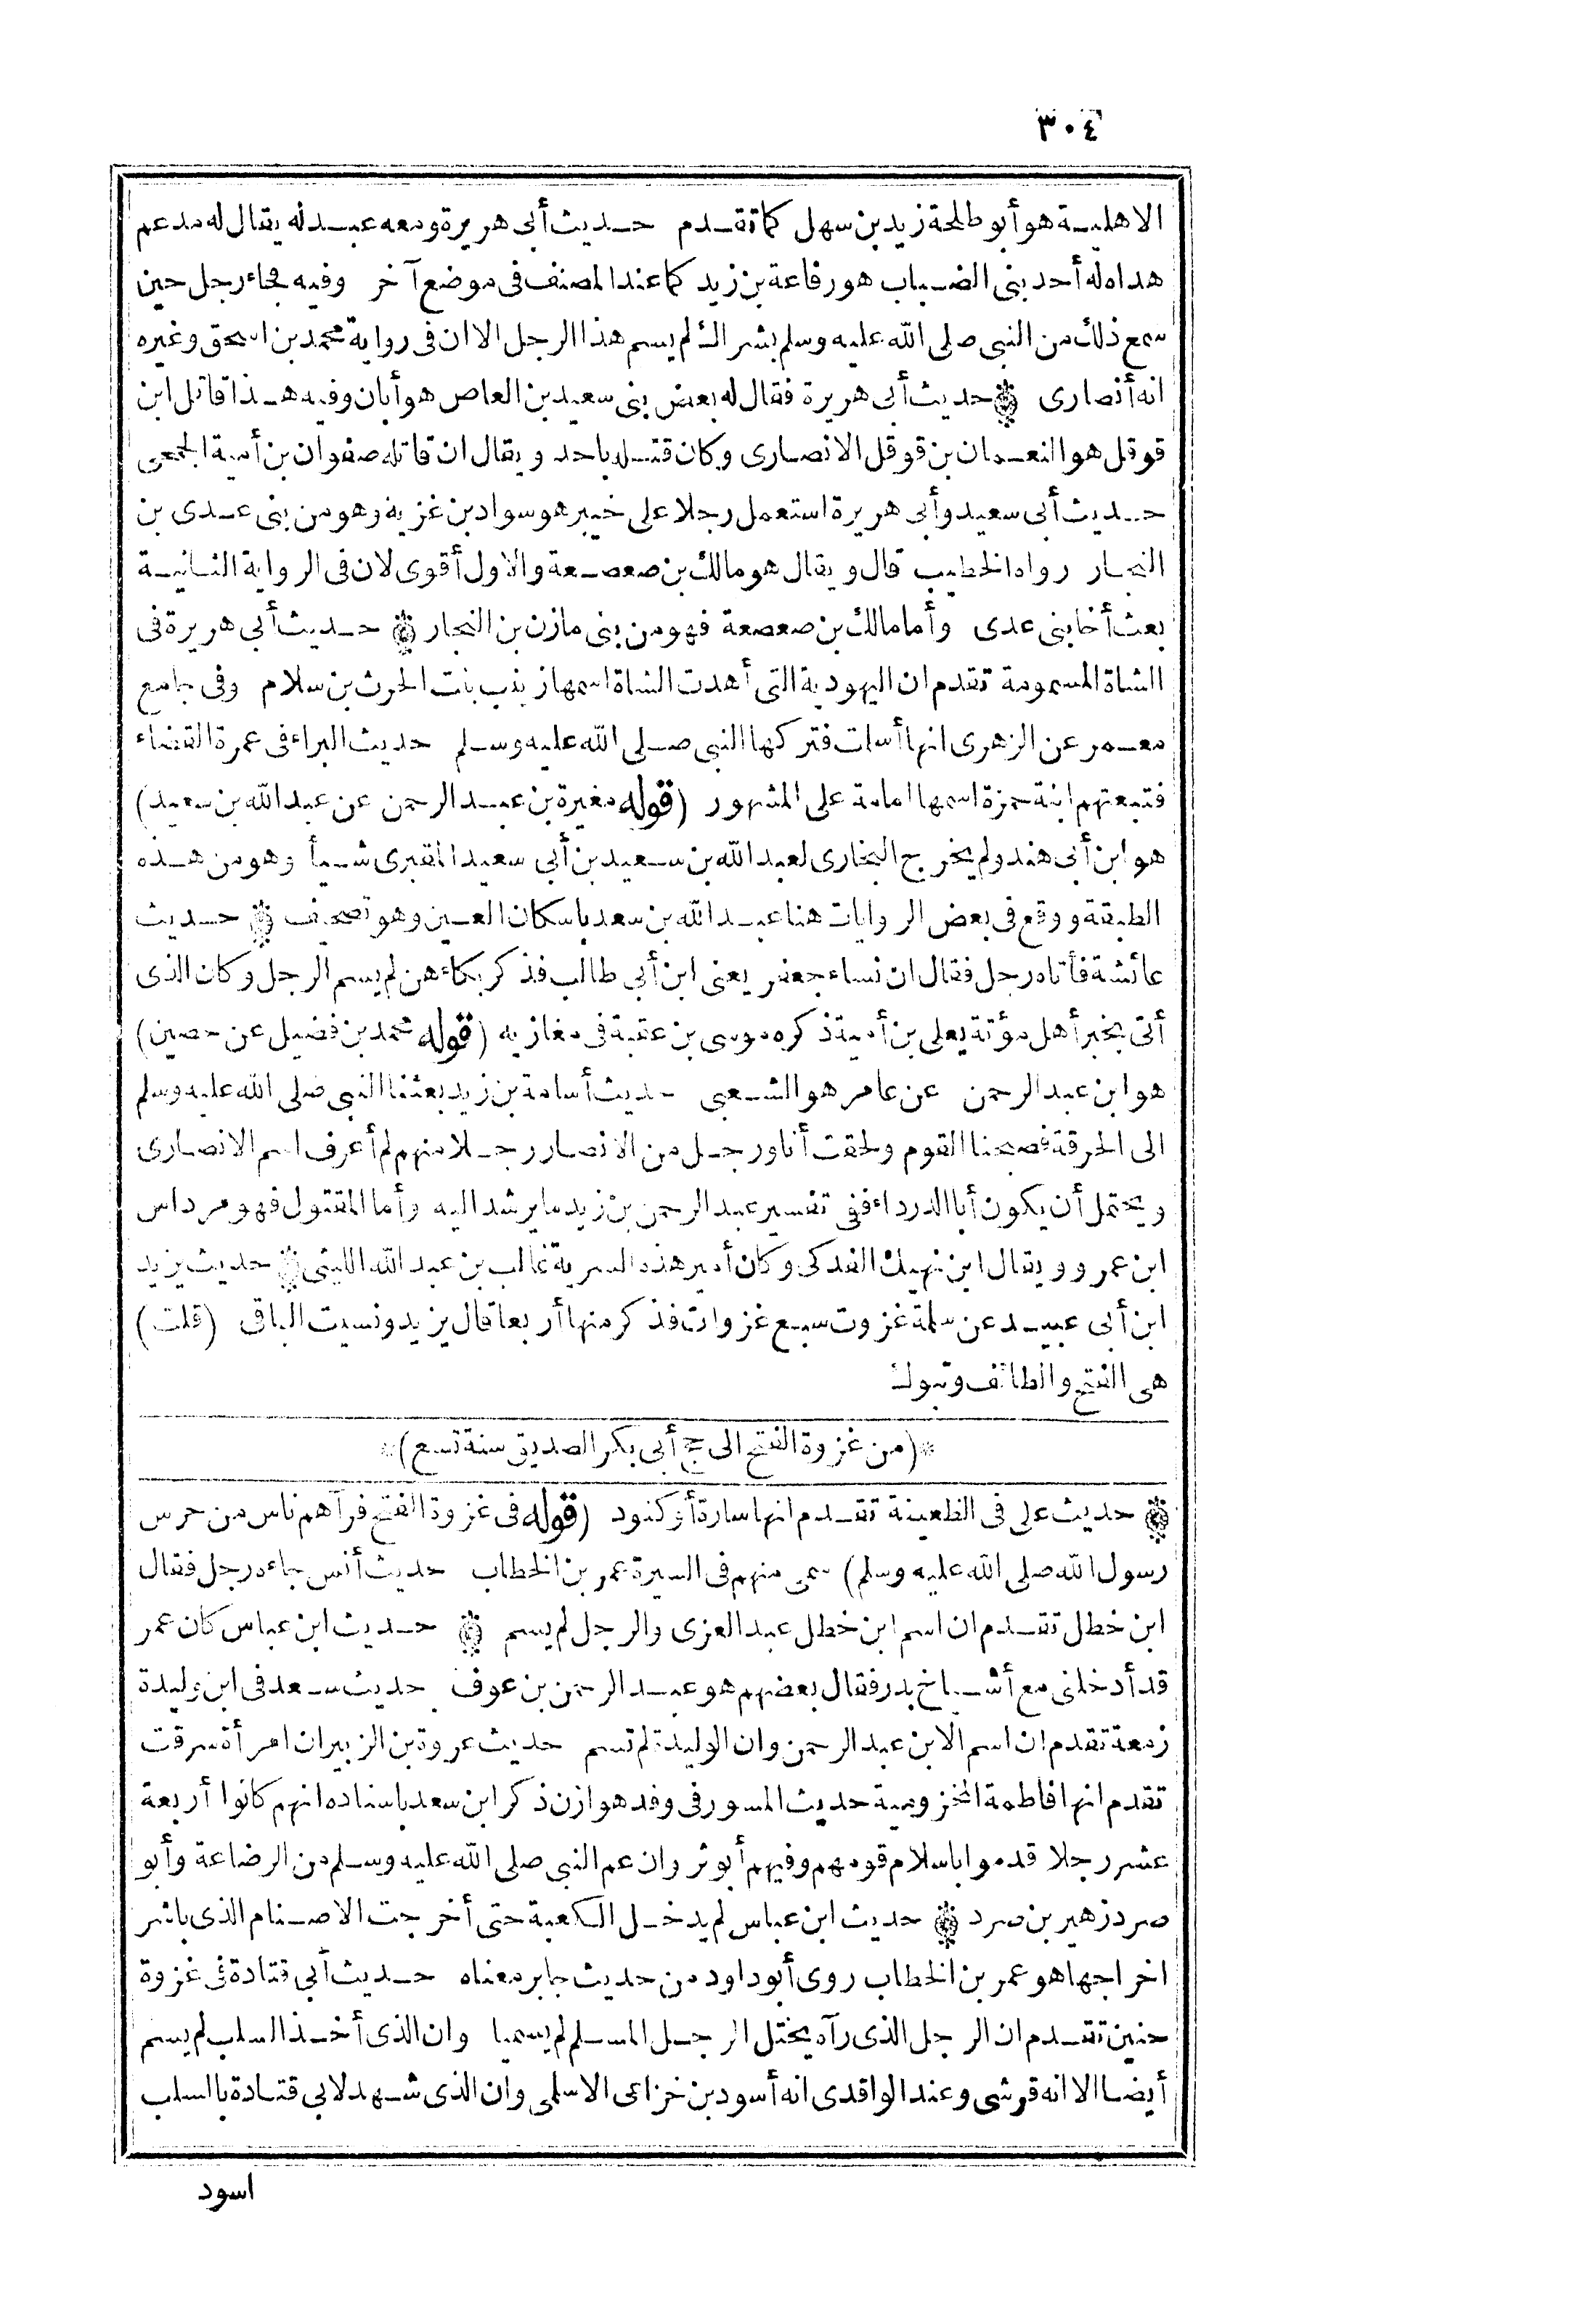 ٣٠٤
الاهلية هو أبو طلحة زيد بن سهل كما تقدم حديث أبي هريرة ومعه عبد له يقال له مدعم
هداه له أحد بني الضباب هو رفاعة بن زيد كما عند المصنف في موضع آخر وفيه فجاء رجل حين
سمع ذلك من النبي صلى الله عليه وسلم بشراك لم يسم هذا الرجل الا ان في رواية محمد بن اسحق وغيره
انه أنصارى ۞ حديث أبي هريرة فقال له بعض بني سعيد بن العاص هو أبان وفيه هذا قاتل ابن
قوقل هو النعمان بن قوقل الانصارى وكان قتله باحد ويقال ان قاتله صفوان بن أمية الجمحى
حديث أبي سعيد وأبي هريرة استعمل رجلا على خيبر هو سواد بن غزية وهو من بني عدى بن
النجار رواه الخطيب قال ويقال هو مالك بن صعصعة والاول أقوى لان في الرواية الثانية
بعث أخا بني عدى وأما مالك بن صعصعة فهو من بني مازن بن النجار ۞ حديث أبي هريرة في
الشاة المسمومة تقدم ان اليهودية التي أهدت الشاة اسمها زينب بنت الحرث بن سلام وفي جامع
معمر عن الزهرى انها أسلمت فتركها النبي صلى الله عليه وسلم حديث البراء في عمرة القضاء
فتبعتهم ابنة حمزة اسمها امامة على المشهور (قوله مغيرة بن عبد الرحمن عن عبد الله بن سعيد)
هو ابن أبي هند ولم يخرج البخارى لعبد الله بن سعيد بن أبي سعيد المقبرى شيأ وهو من هذه
الطبقة ووقع في بعض الروايات هنا عبد الله بن سعد باسكان العين وهو تصحيف ۞ حديث
عائشة فأتاه رجل فقال ان نساء جعفر يعنى ابن أبي طالب فذكر بكاءهن لم يسم الرجل وكان الذى
أتى بخبر أهل مؤتة يعلى بن أمية ذكره موسى بن عقبة في مغازيه (قوله محمد بن فضيل عن حصين)
هو ابن عبد الرحمن عن عامر هو الشعبى حديث أسامة بن زيد بعثنا النبي صلى الله عليه وسلم
الى الحرقة فصبحنا القوم ولحقت أنا ورجل من الانصار رجلا منهم لم أعرف اسم الانصارى
ويحتمل أن يكون أبا الدرداء ففى تفسير عبد الرحمن بن زيد ما يرشد اليه وأما المقتول فهو مرداس
ابن عمرو ويقال ابن نهيك الفدكى وكان أمير هذه السرية غالب بن عبد الله الليثى ۞ حديث يزيد
ابن أبي عبيد عن سلمة غزوت سبع غزوات فذكر منها أربعا قال يزيد ونسيت الباقى (قلت)
هى الفتح والطائف وتبوك
*(من غزوة الفتح الى حج أبي بكر الصديق سنة تسع)*
۞ حديث على في الظعينة تقدم انها سارة أو كنود (قوله في غزوة الفتح فرآهم ناس من حرس
رسول الله صلى الله عليه وسلم) سمى منهم في السيرة عمر بن الخطاب حديث أنس جاءه رجل فقال
ابن خطل تقدم ان اسم ابن خطل عبد العزى والرجل لم يسم ۞ حديث ابن عباس كان عمر
قد أدخلنى مع أشياخ بدر فقال بعضهم هو عبد الرحمن بن عوف حديث سعد في ابن وليدة
زمعة تقدم ان اسم الابن عبد الرحمن وان الوليدة لم تسم حديث عروة بن الزبير ان امرأة سرقت
تقدم انها فاطمة المخزومية حديث المسور في وفد هوازن ذكر ابن سعد باسناده انهم كانوا أربعة
عشر رجلا قدموا باسلام قومهم وفيهم أبو ثروان عم النبي صلى الله عليه وسلم من الرضاعة وأبو
صرد زهير بن صرد ۞ حديث ابن عباس لم يدخل الكعبة حتى أخرجت الاصنام الذى باشر
اخراجها هو عمر بن الخطاب روى أبو داود من حديث جابر معناه حديث أبي قتادة في غزوة
حنين تقدم ان الرجل الذى رآه يختل الرجل المسلم لم يسميا وان الذى أخذ السلب لم يسم
أيضا الا انه قرشى وعند الواقدى انه أسود بن خزاعى الاسلمى وان الذى شهد لابي قتادة بالسلب
اسود